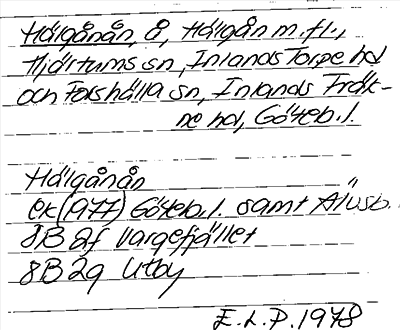 Hälgånån, å, Hälgån m.fl.,
Hjärtums sn, Inlands Torpe hd
och Forshälla sn, Inlands Fräk-
ne hd, Göteb. l.
Hälgånån
ek (1977) Göteb. l. samt Älvsb.
8B 2f Vargefjället
8B 2g Utby
E. L. P. 1978